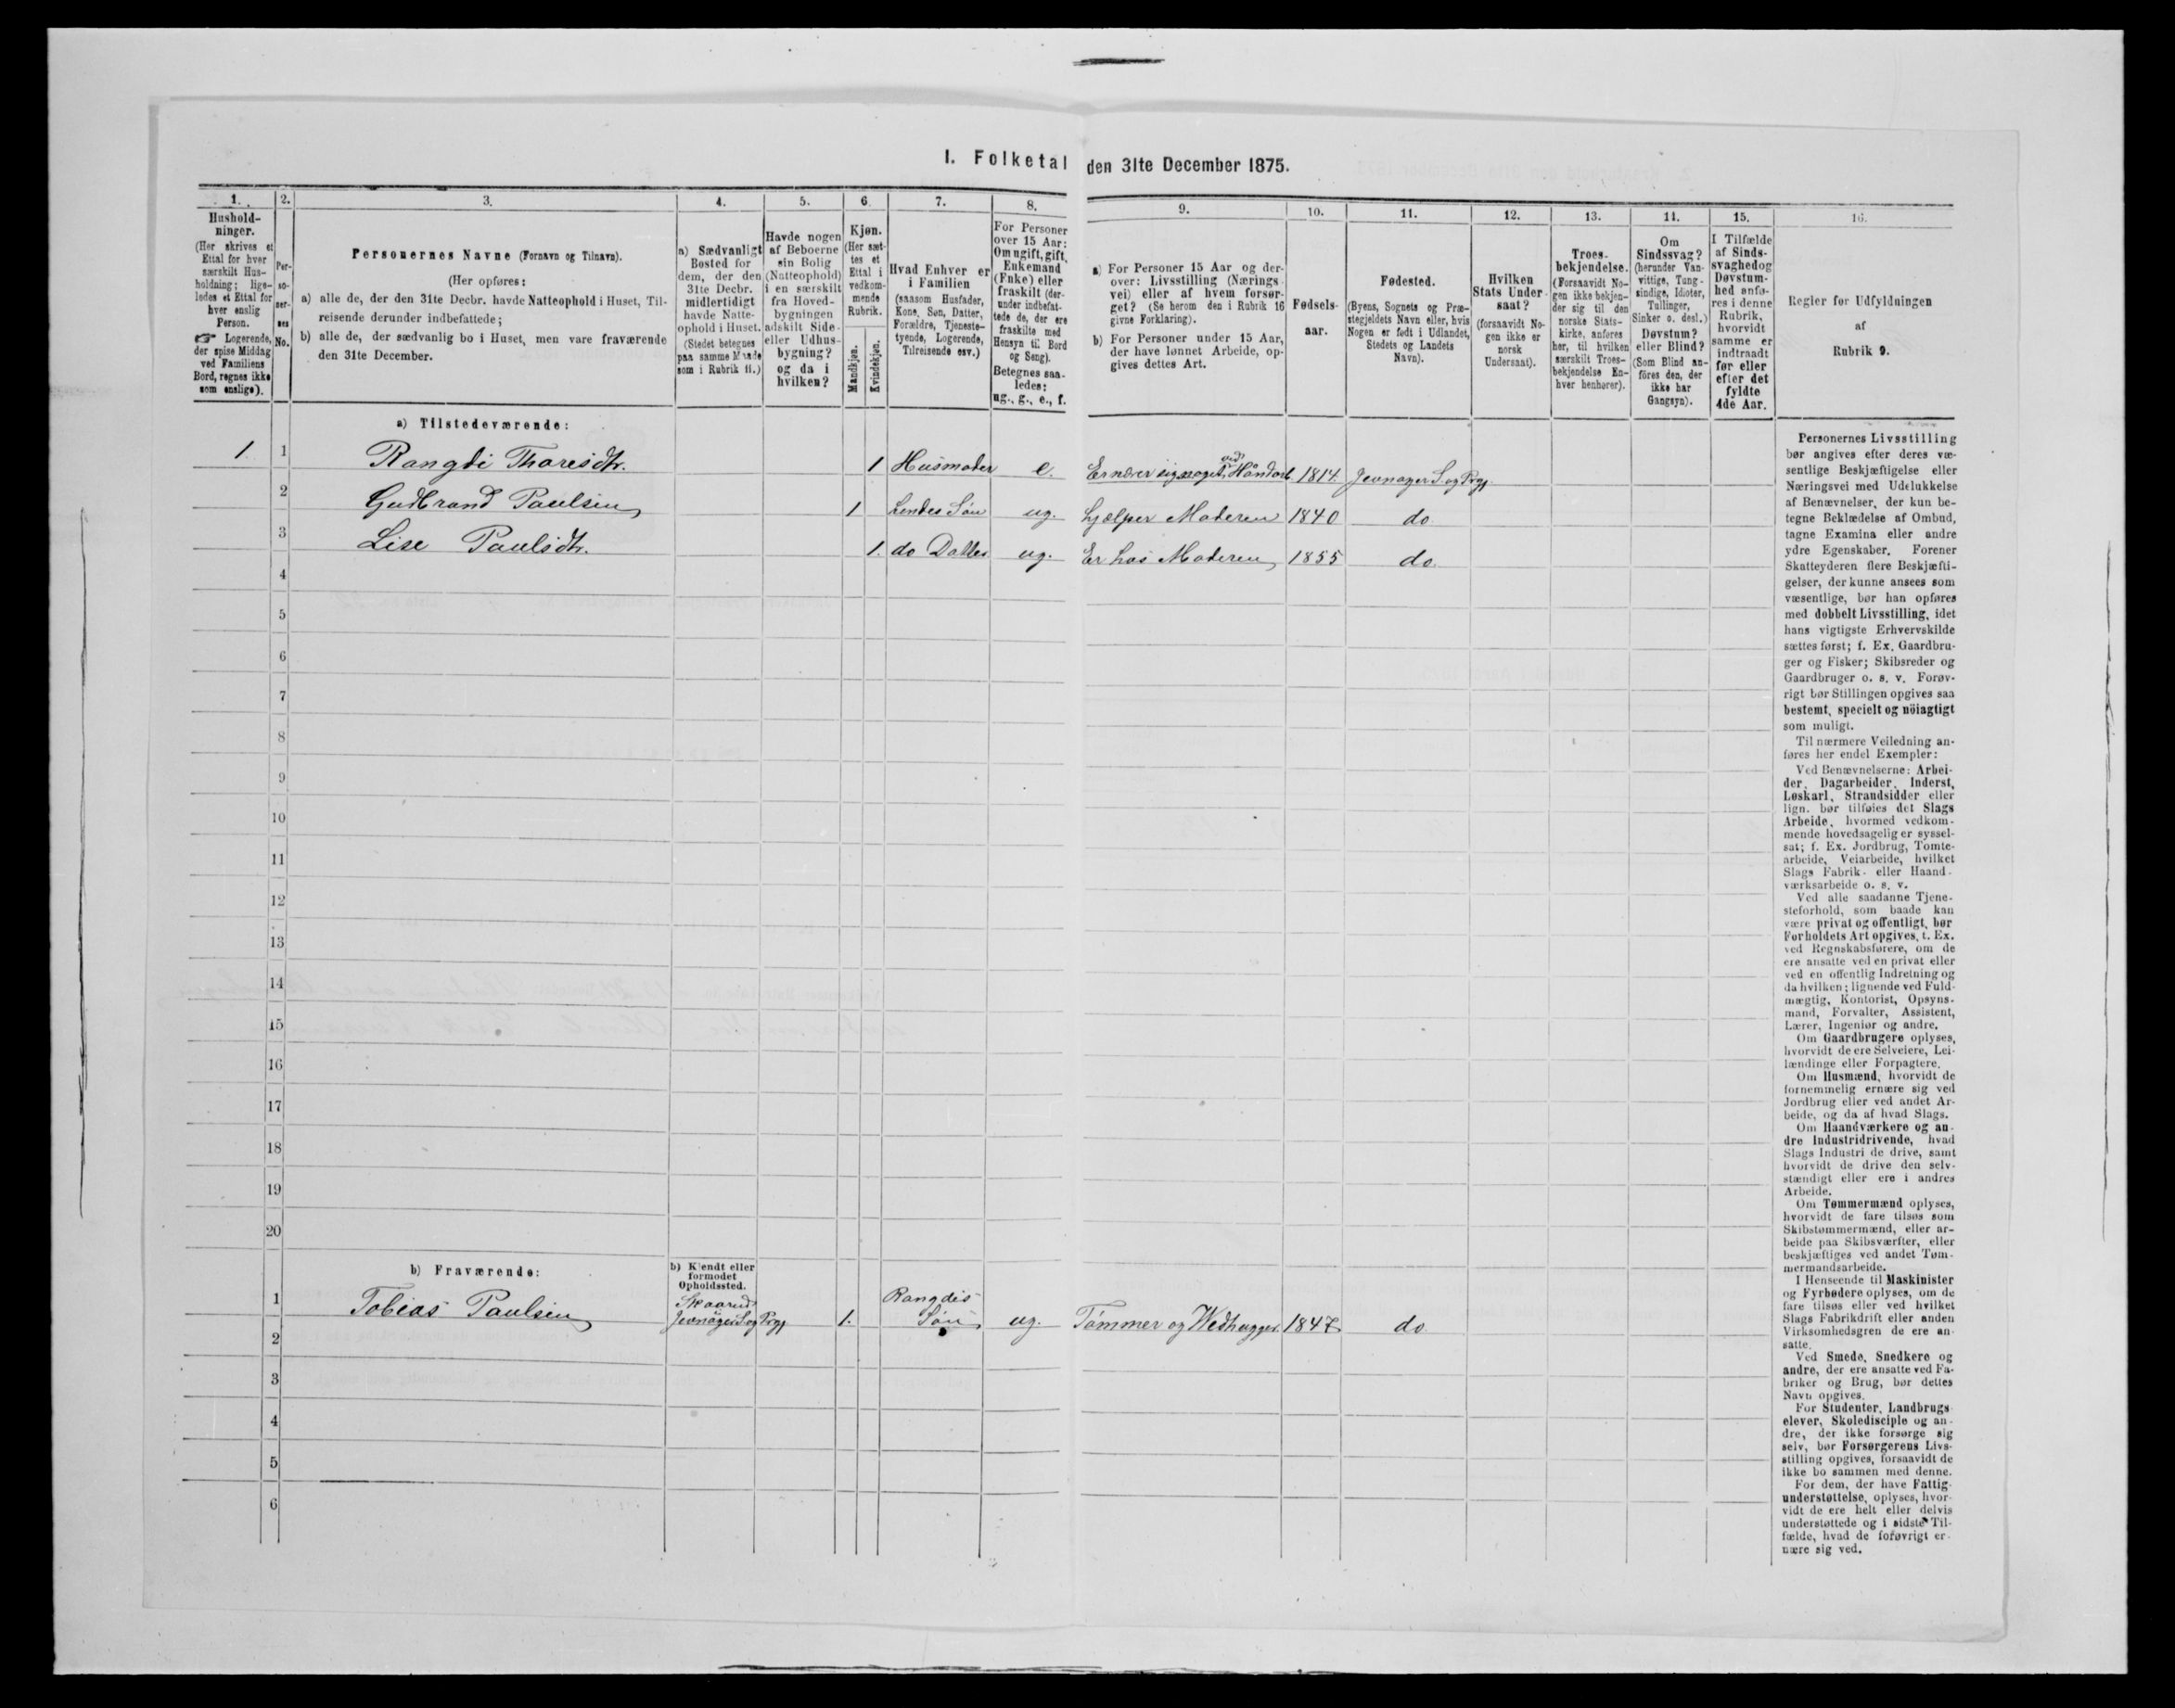 I. Folketal den 31te December 1875.
1.
Hushold-
ninger.
(Her skrives et
Ettal for hver
særskilt Hus-
holdning; lige-
ledes et Ettal for
hver enslig
Person.
☞ Logerende,
der spise Middag
ved Familiens
Bord, regnes ikke
som enslige).
2.
Per-
so-
ner-
nes
No.
3.
Personernes Navne (Fornavn og Tilnavn).
(Her opføres:
a) alle de, der den 31te Decbr. havde Natteophold i Huset, Til-
reisende derunder indbefattede;
b) alle de, der sædvanlig bo i Huset, men vare fraværende
den 31te December.
4.
a) Sædvanligt
Bosted for
dem, der den
31te Decbr.
midlertidigt
havde Natte-
ophold i Huset.
(Stedet betegnes
paa samme Maade
som i Rubrik 11.)
5.
Havde nogen
af Beboerne
sin Bolig
(Natteophold)
i en særskilt
fra Hoved-
bygningen
adskilt Side-
eller Udhus-
bygning?
og da i
hvilken?
6.
Kjøn.
(Her sæt-
tes et
Ettal i
vedkom-
mende
Rubrik.
Mandkjøn.
Kvindekjøn.
7.
Hvad Enhver er
i Familien
(saasom Husfader,
Kone, Søn, Datter,
Forældre, Tjeneste-
tyende, Logerende,
Tilreisende osv.)
8.
For Personer
over 15 Aar:
Om ugift, gift,
Enkemand
(Enke) eller
fraskilt (der-
under indbefat-
tede de, der ere
fraskilte med
Hensyn til Bord
og Seng).
Betegnes saa-
ledes:
ug., g., e., f.
9.
a) For Personer 15 Aar og der-
over: Livsstilling (Nærings-
vei) eller af hvem forsør-
get? (Se herom den i Rubrik 16
givne Forklaring).
b) For Personer under 15 Aar,
der have lønnet Arbeide, op-
gives dettes Art.
10.
Fødsels-
aar.
11.
Fødested.
(Byens, Sognets og Præ-
stegjeldets Navn eller, hvis
Nogen er født i Udlandet,
Stedets og Landets
Navn).
12.
Hvilken
Stats Under-
saat?
(forsaavidt No-
gen ikke er
norsk
Undersaat).
13.
Troes-
bekjendelse.
(Forsaavidt No-
gen ikke bekjen-
der sig til den
norske Stats-
kirke, anføres
her, til hvilken
særskilt Troes-
bekjendelse En-
hver henhører).
14.
Om
Sindssvag?
(herunder Van-
vittige, Tung-
sindige, Idioter,
Tullinger,
Sinker o. desl.)
Døvstum?
eller Blind?
(Som Blind an-
føres den, der
ikke har
Gangsyn).
15.
I Tilfælde
af Sinds-
svaghed og
Døvstum-
hed anfø-
res i denne
Rubrik,
hvorvidt
samme er
indtraadt
før eller
efter det
fyldte
4de Aar.
16.
Regler for Udfyldningen
af
Rubrik 9.
a) Tilstedeværende:
1 1 Rangdi Tharesdtr. 1 Husmoder e. Ernærer sig noget ved Håndarb. 1814. Jevnager S. og Prgj
2 Gudbrand Paulsen 1 Hendes Søn ug. hjælper Moderen 1840 do
3 Lise Paulsdtr. 1. do Datter ug. Er hos Moderen 1855 do.
4
5
6
7
8
9
10
11
12
13
14
15
16
17
18
19
20
b) Fraværende:
b) Kjendt eller
formodet
Opholdssted.
1 Tobias Paulsen Skaarud Jevnager S. og Prgj 1. Rangdis Søn ug. Tømmer og Wedhugger 1847 do
2
3
4
5
6
Personernes Livsstilling
bør angives efter deres væ-
sentlige Beskjæftigelse eller
Næringsvei med Udelukkelse
af Benævnelser, der kun be-
tegne Beklædelse af Ombud,
tagne Examina eller andre
ydre Egenskaber. Forener
Skatteyderen flere Beskjæfti-
gelser, der kunne ansees som
væsentlige, bør han opføres
med dobbelt Livsstilling, idet
hans vigtigste Erhvervskilde
sættes først; f. Ex. Gaardbru-
ger og Fisker; Skibsreder og
Gaardbruger o. s. v. Forøv-
rigt bør Stillingen opgives saa
bestemt, specielt og nöiagtigt
som muligt.
Til nærmere Veiledning an-
føres her endel Exempler:
Ved Benævnelserne: Arbei-
der, Dagarbeider, Inderst,
Løskarl, Strandsidder eller
lign. bør tilføies det Slags
Arbeide, hvormed vedkom-
mende hovedsagelig er syssel-
sat; f. Ex. Jordbrug, Tomte-
arbeide, Veiarbeide, hvilket
Slags Fabrik- eller Haand-
værksarbeide o. s. v.
Ved alle saadanne Tjene-
steforhold, som baade kan
være privat og offentligt, bør
Forholdets Art opgives, f. Ex.
ved Regnskabsførere, om de
ere ansatte ved en privat eller
ved en offentlig Indretning og
da hvilken; lignende ved Fuld-
mægtig, Kontorist, Opsyns-
mand, Forvalter, Assistent,
Lærer, Ingeniør og andre.
Om Gaardbrugere oplyses,
hvorvidt de ere Selveiere, Lei-
lændinge eller Forpagtere.
Om Husmænd, hvorvidt de
fornemmelig ernære sig ved
Jordbrug eller ved andet Ar-
beide, og da af hvad Slags.
Om Haandværkere og an-
dre Industridrivende, hvad
Slags Industri de drive, samt
hvorvidt de drive den selv-
stændigt eller ere i andres
Arbeide.
Om Tømmermænd oplyses,
hvorvidt de fare tilsøs som
Skibstømmermænd, eller ar-
beide paa Skibsværfter, eller
beskjæftiges ved andet Tøm-
mermandsarbeide.
I Henseende til Maskinister
og Fyrbødere oplyses, om de
fare tilsøs eller ved hvilket
Slags Fabrikdrift eller anden
Virksomhedsgren de ere an-
satte.
Ved Smede, Snedkere og
andre, der ere ansatte ved Fa-
briker og Brug, bør dettes
Navn opgives.
For Studenter, Landbrugs-
elever, Skoledisciple og an-
dre, der ikke forsørge sig
selv, bør Forsørgerens Livs-
stilling opgives, forsaavidt de
ikke bo sammen med denne.
For dem, der have Fattig-
understøttelse, oplyses, hvor-
vidt de ere helt eller delvis
understøttede og i sidste Til-
fælde, hvad de forøvrigt er-
nære sig ved.